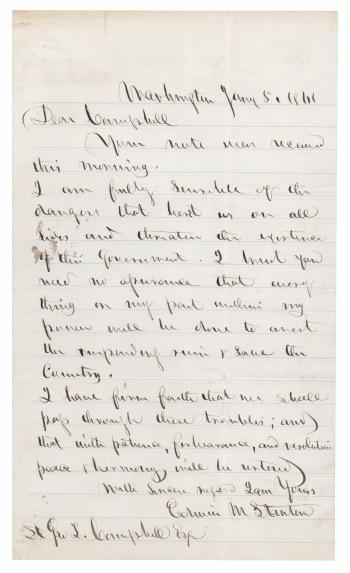 Washington Jany 5. 1861
Dear Campbell
Your note was received
this morning.
I am fully sensible of the
dangers that beset us on all
sides and threaten the existence
of this Government. I trust you
need no assurance that every
thing on my part within my
power will be done to avert
the impending ruin & save the
Country.
I have firm faith that we shall
pass through these troubles; and
that with patience, forbearance, and resolution
peace & harmony will be restored
With Sincere regard I am Yours
Edwin M Stanton
St Geo T. Campbell Esq